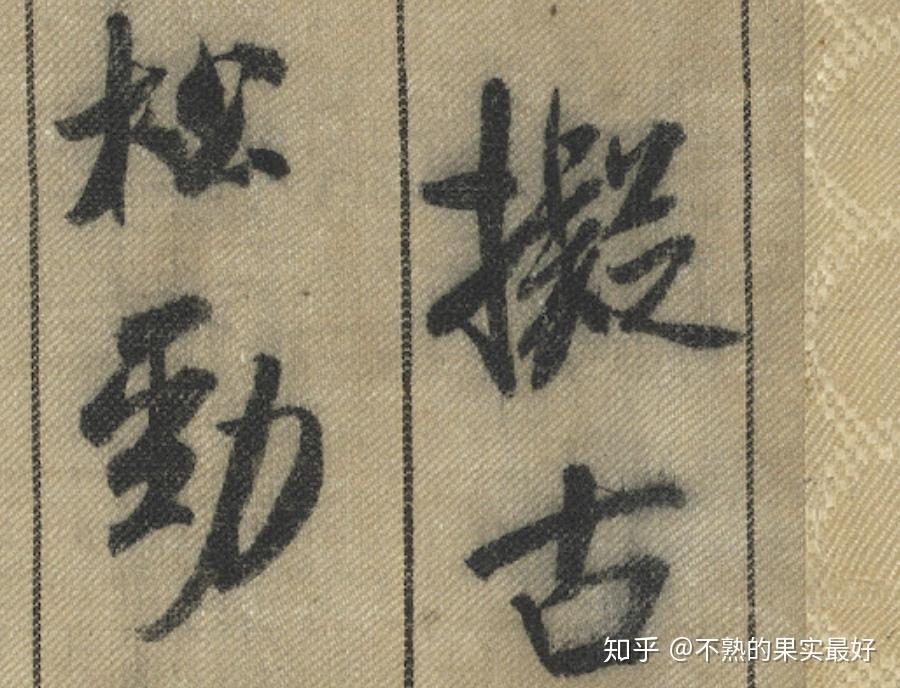 擬古
松勁
知乎 @不熟的果实最好